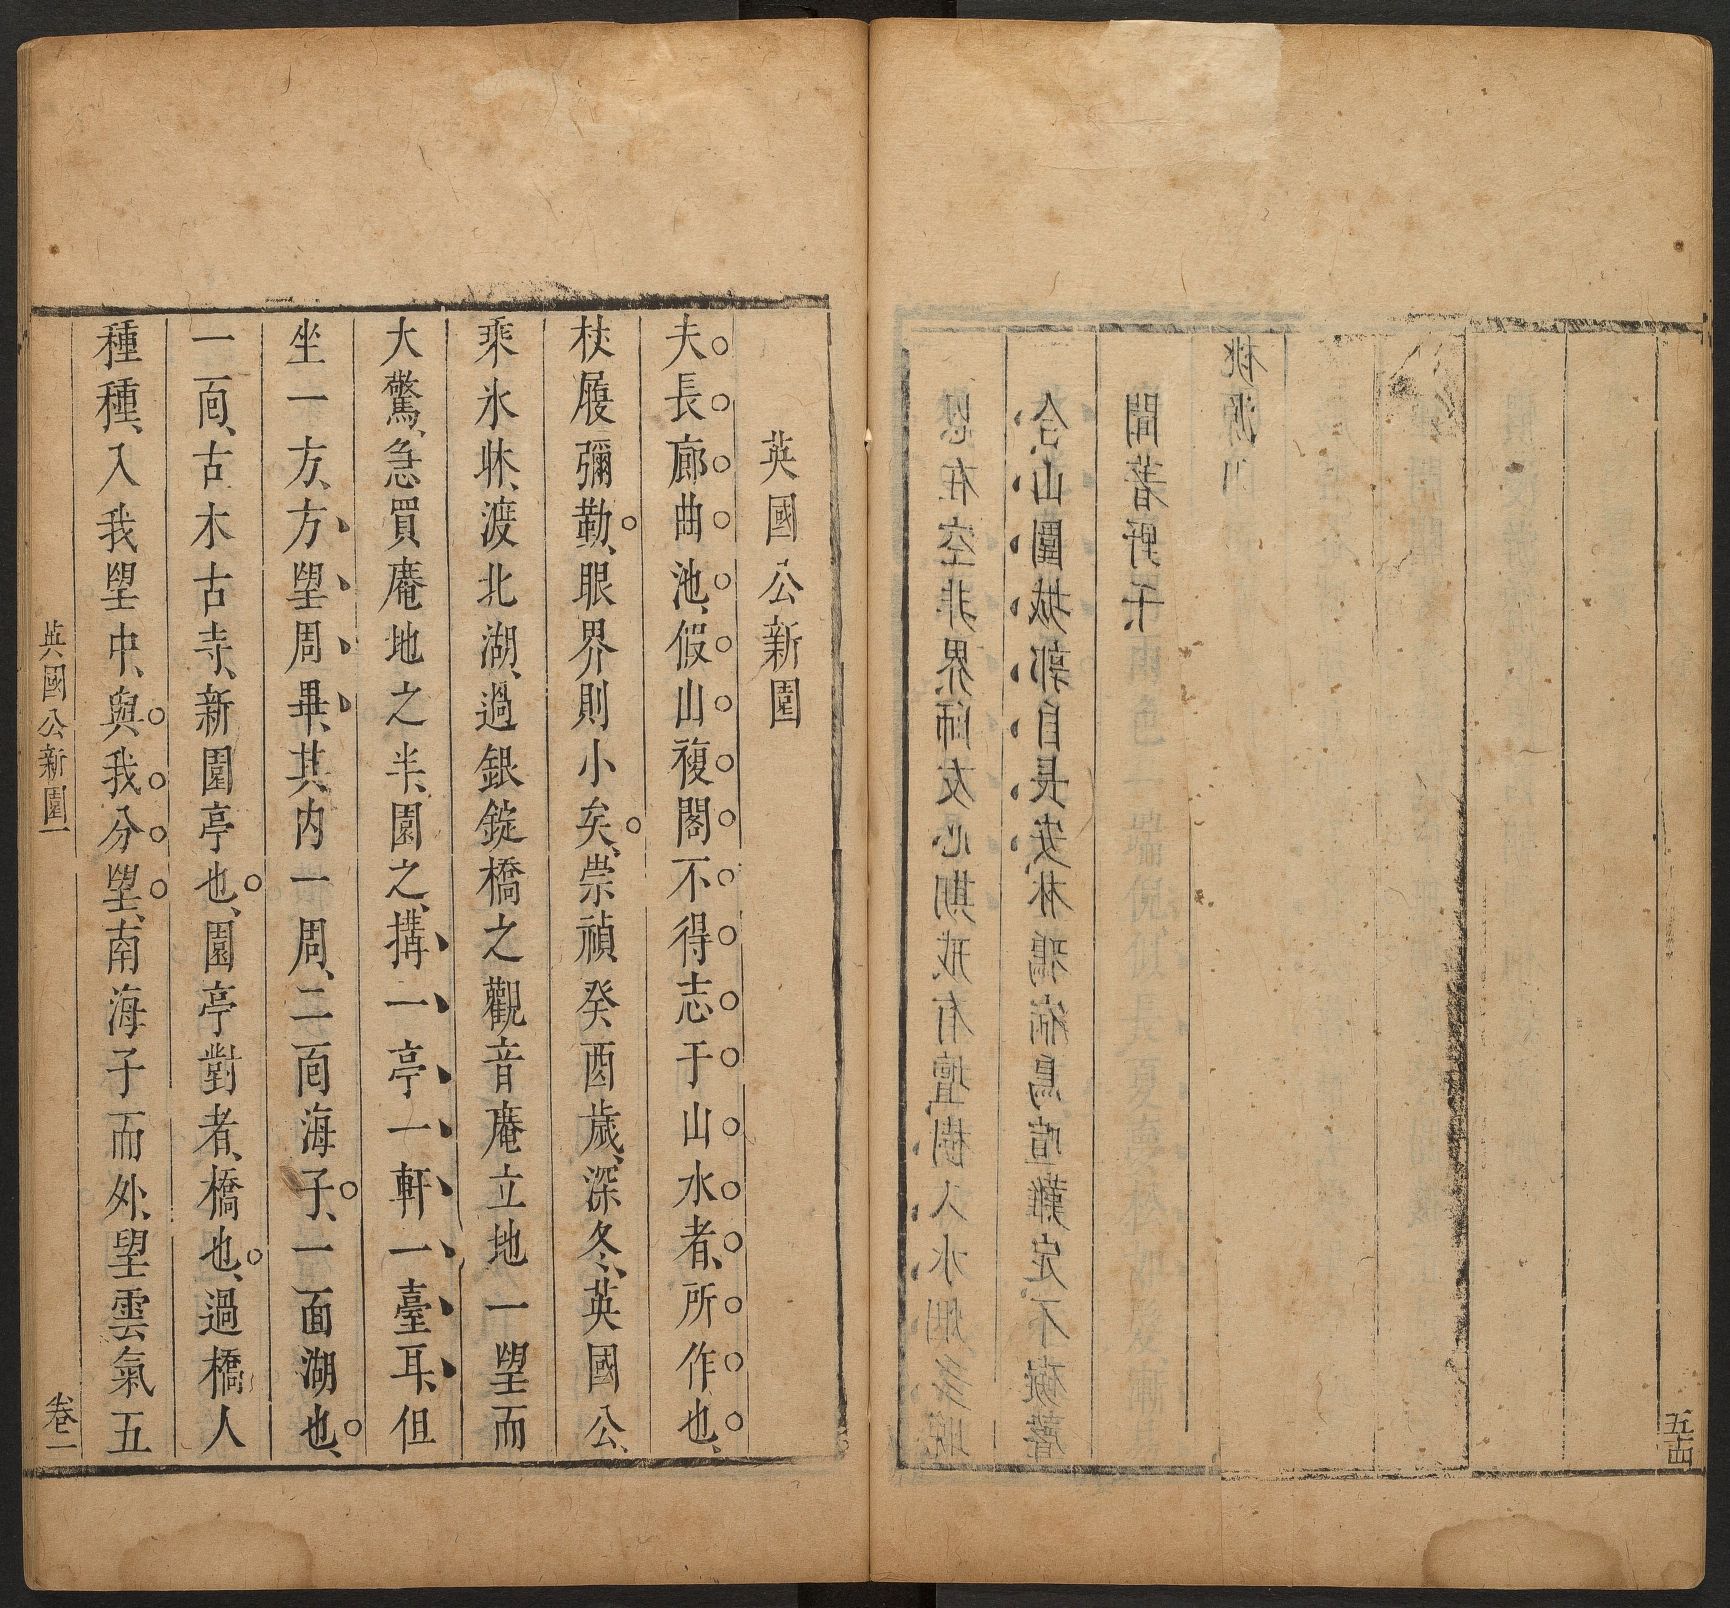 五十四
在空非界師友心期戒有壇樹入水烟多
合山圍城郭自長安林鴉病鳥喧難定不礙聲
聞著野干
桃源
英國公新園
夫長廊曲池、假山複閣不得志于山水者、所作也、
杖履彌勤、眼界則小矣、崇禎癸酉歲、深冬、英國公、
乘氷牀、渡北湖、過銀錠橋之觀音庵立地一望而
大驚、急買庵地之半、園之、搆一亭一軒一臺耳、但
坐一方、方望周畢、其内一周、二面海子、一面湖也、
一面、古木古寺、新園亭也、園亭對者、橋也、過橋人
種種、入我望中、與我分望、南海子而外、望雲氣五
英國公新園
卷一